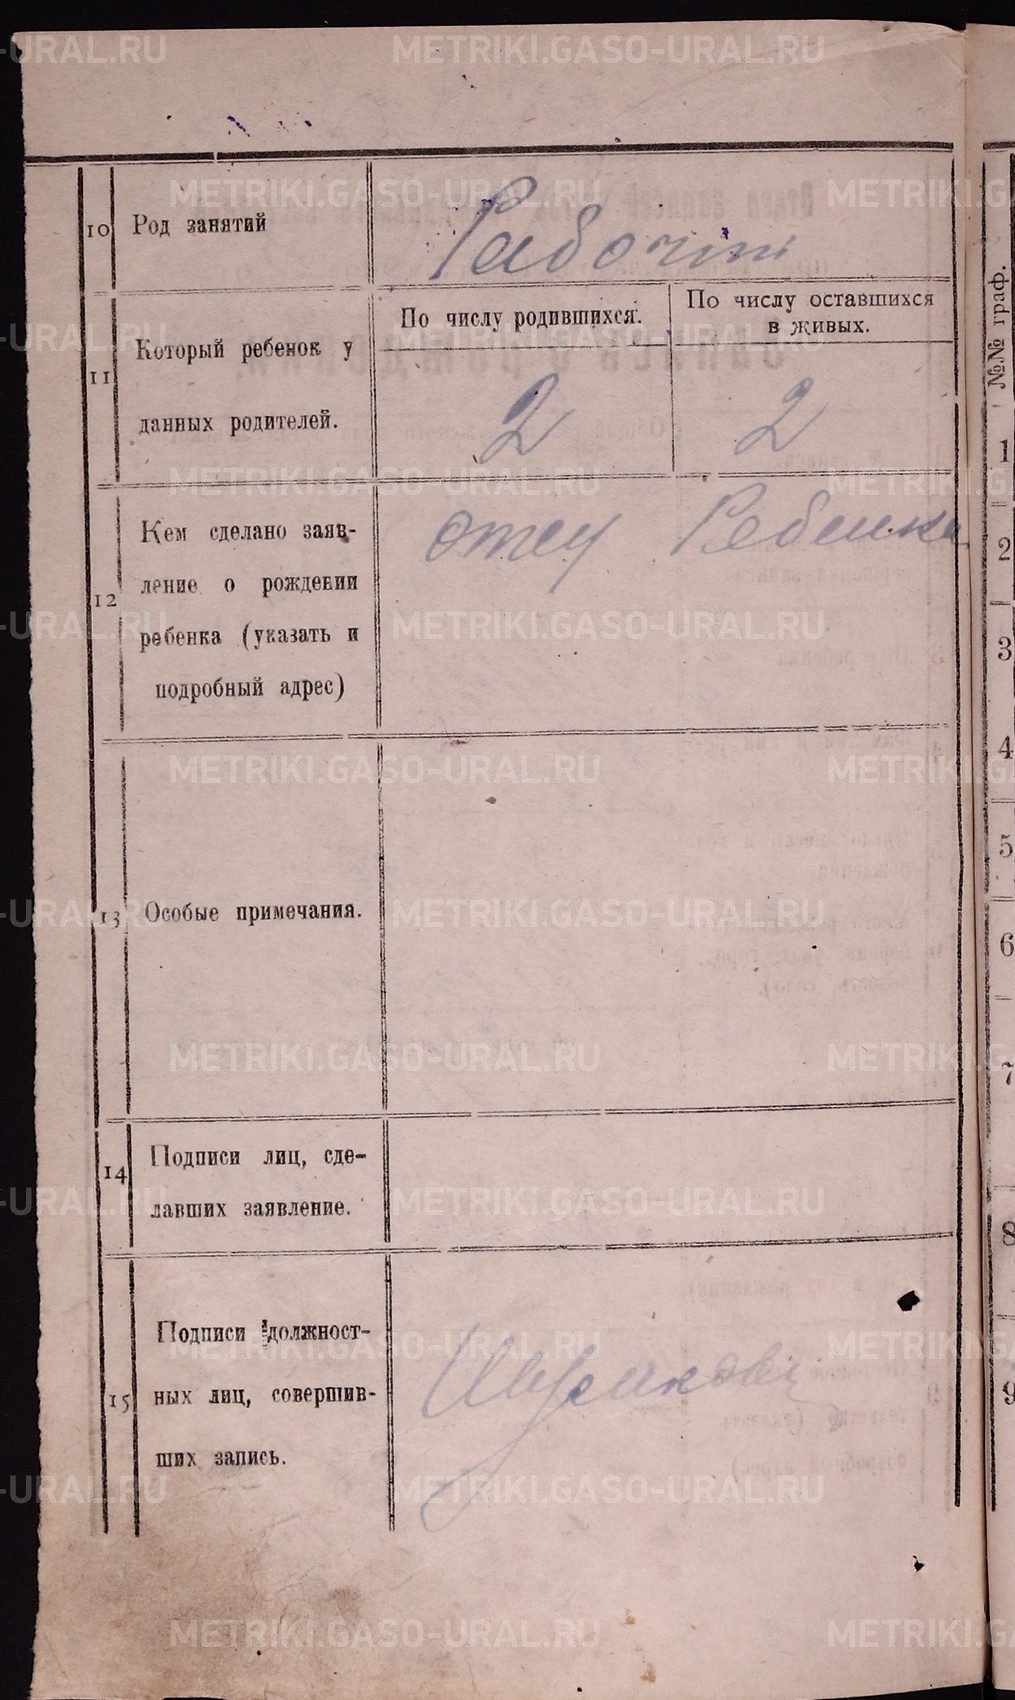 METRIKI.GASO-URAL.RU
10 Род занятий
Рабочий
11 Который ребенок у
данных родителей.
По числу родившихся.
По числу оставшихся
в живых.
2
2
12 Кем сделано заяв-
ление о рождении
ребенка (указать и
подробный адрес)
отец Ребенка
13 Особые примечания.
14 Подписи лиц, сде-
лавших заявление.
15 Подписи должност-
ных лиц, совершив-
ших запись.
№№ граф.
1
2
3
4
5
6
7
8
9